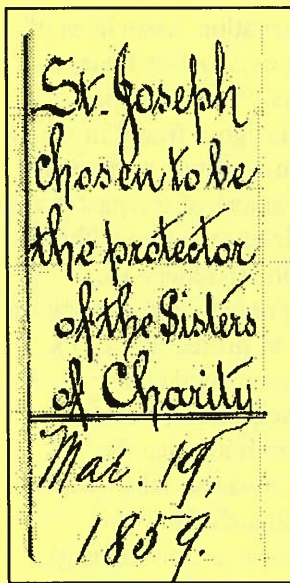 St. Joseph
chosen to be
the protector
of the Sisters
of Charity
Mar. 19,
1859.